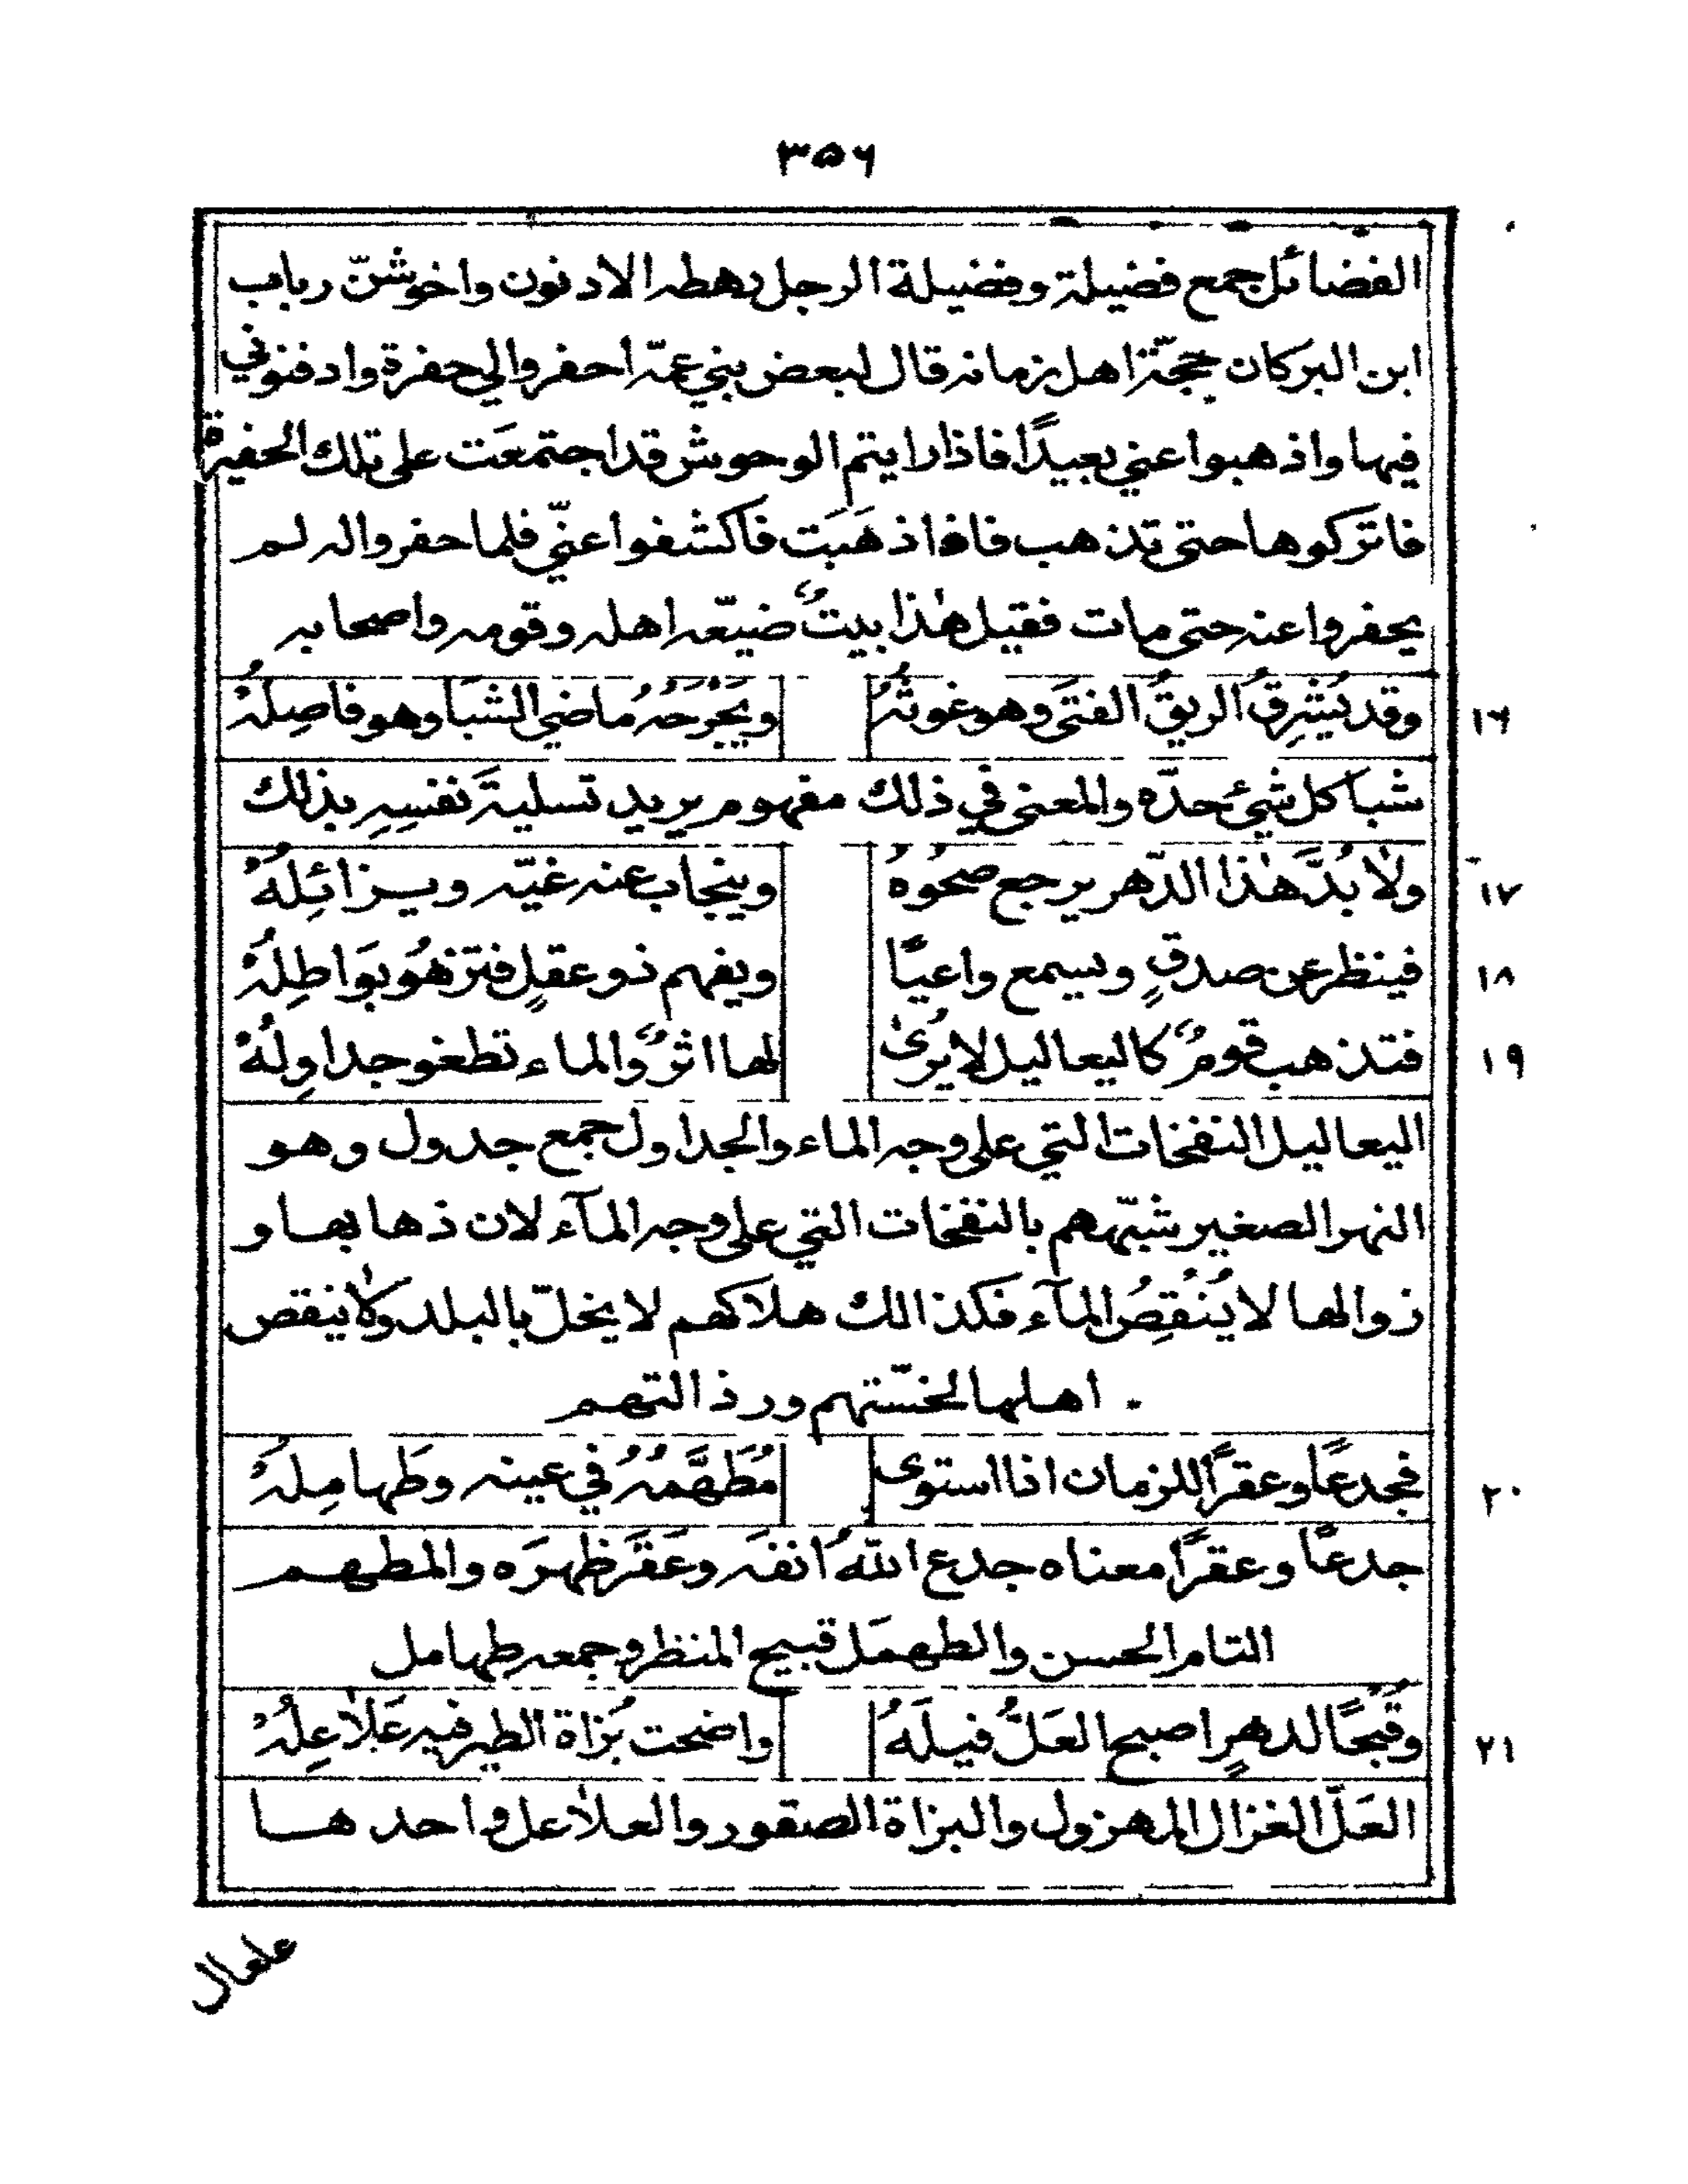 ٣٥٦
الفضائل جمع فضيلة وفضيلة الرجل رهطه الادنون واخوشنّ رباب
ابن البركان حجّة اهل زمانه قال لبعض بني عمّه احفروا لي حفرة وادفنوني
فيها واذهبوا عني بعيدًا فاذا رايتم الوحوش قد اجتمعَت على تلك الحفيرة
فاتركوها حتى تذهب فاذا ذهَبَت فاكشفوا عنّي فلما حفروا له لم
يحفروا عنه حتى مات فقيل هٰذا بيتٌ ضيّعه اهله وقومه واصحابه
١٦ وقد يُشرِقُ الريقُ الفتَى وهو غوثُهُ ويَجْرَحُهُ ماضي الشبَا وهو فاصِلُهْ
شبا كل شيءٍ حدّه والمعنى في ذلك مفهوم يريد تسليةَ نفسِهِ بذلك
١٧ ولا بُدَّ هٰذا الدّهر يرجع صحوُهُ وينجاب عنه غيّه ويزائِلُهْ
١٨ فينظر عن صدقٍ ويسمع واعيًا ويفهم ذو عقلٍ فتزهُو بَوَاطِلُهْ
١٩ فتذهب قومٌ كاليعاليل لا يُرىٰ لها اثرٌ والماء تطغو جداوِلُهْ
اليعاليل النفخات التي على وجه الماء والجداول جمع جدول وهو
النهر الصغير شبّههم بالنفخات التي على وجه المآء لان ذهابها و
زوالها لا يُنْقِصُ المآء فكذالك هلاكهم لا يخلّ بالبلد ولا ينقص
اهلها لخسّتهم ورذالتهم
٢٠ فجدعًا وعقرًا للزمان اذا استوى مُطَهَّمُهُ في عينه وطَهامِلُهْ
جدعًا وعقرًا معناه جدع اللّٰهُ انفَه وعَقَرَ ظهرَه والمطهم
التام الحسن والطهمَل قبيح المنظر وجمعه طهامل
٢١ وقُبحًا لدهرٍ اصبح العَلُّ فيلَهُ واضحت بُزاة الطير فيه عَلاعِلُهْ
العَلّ الغزال المهزول والبزاة الصقور والعلاعل واحدها
علعال